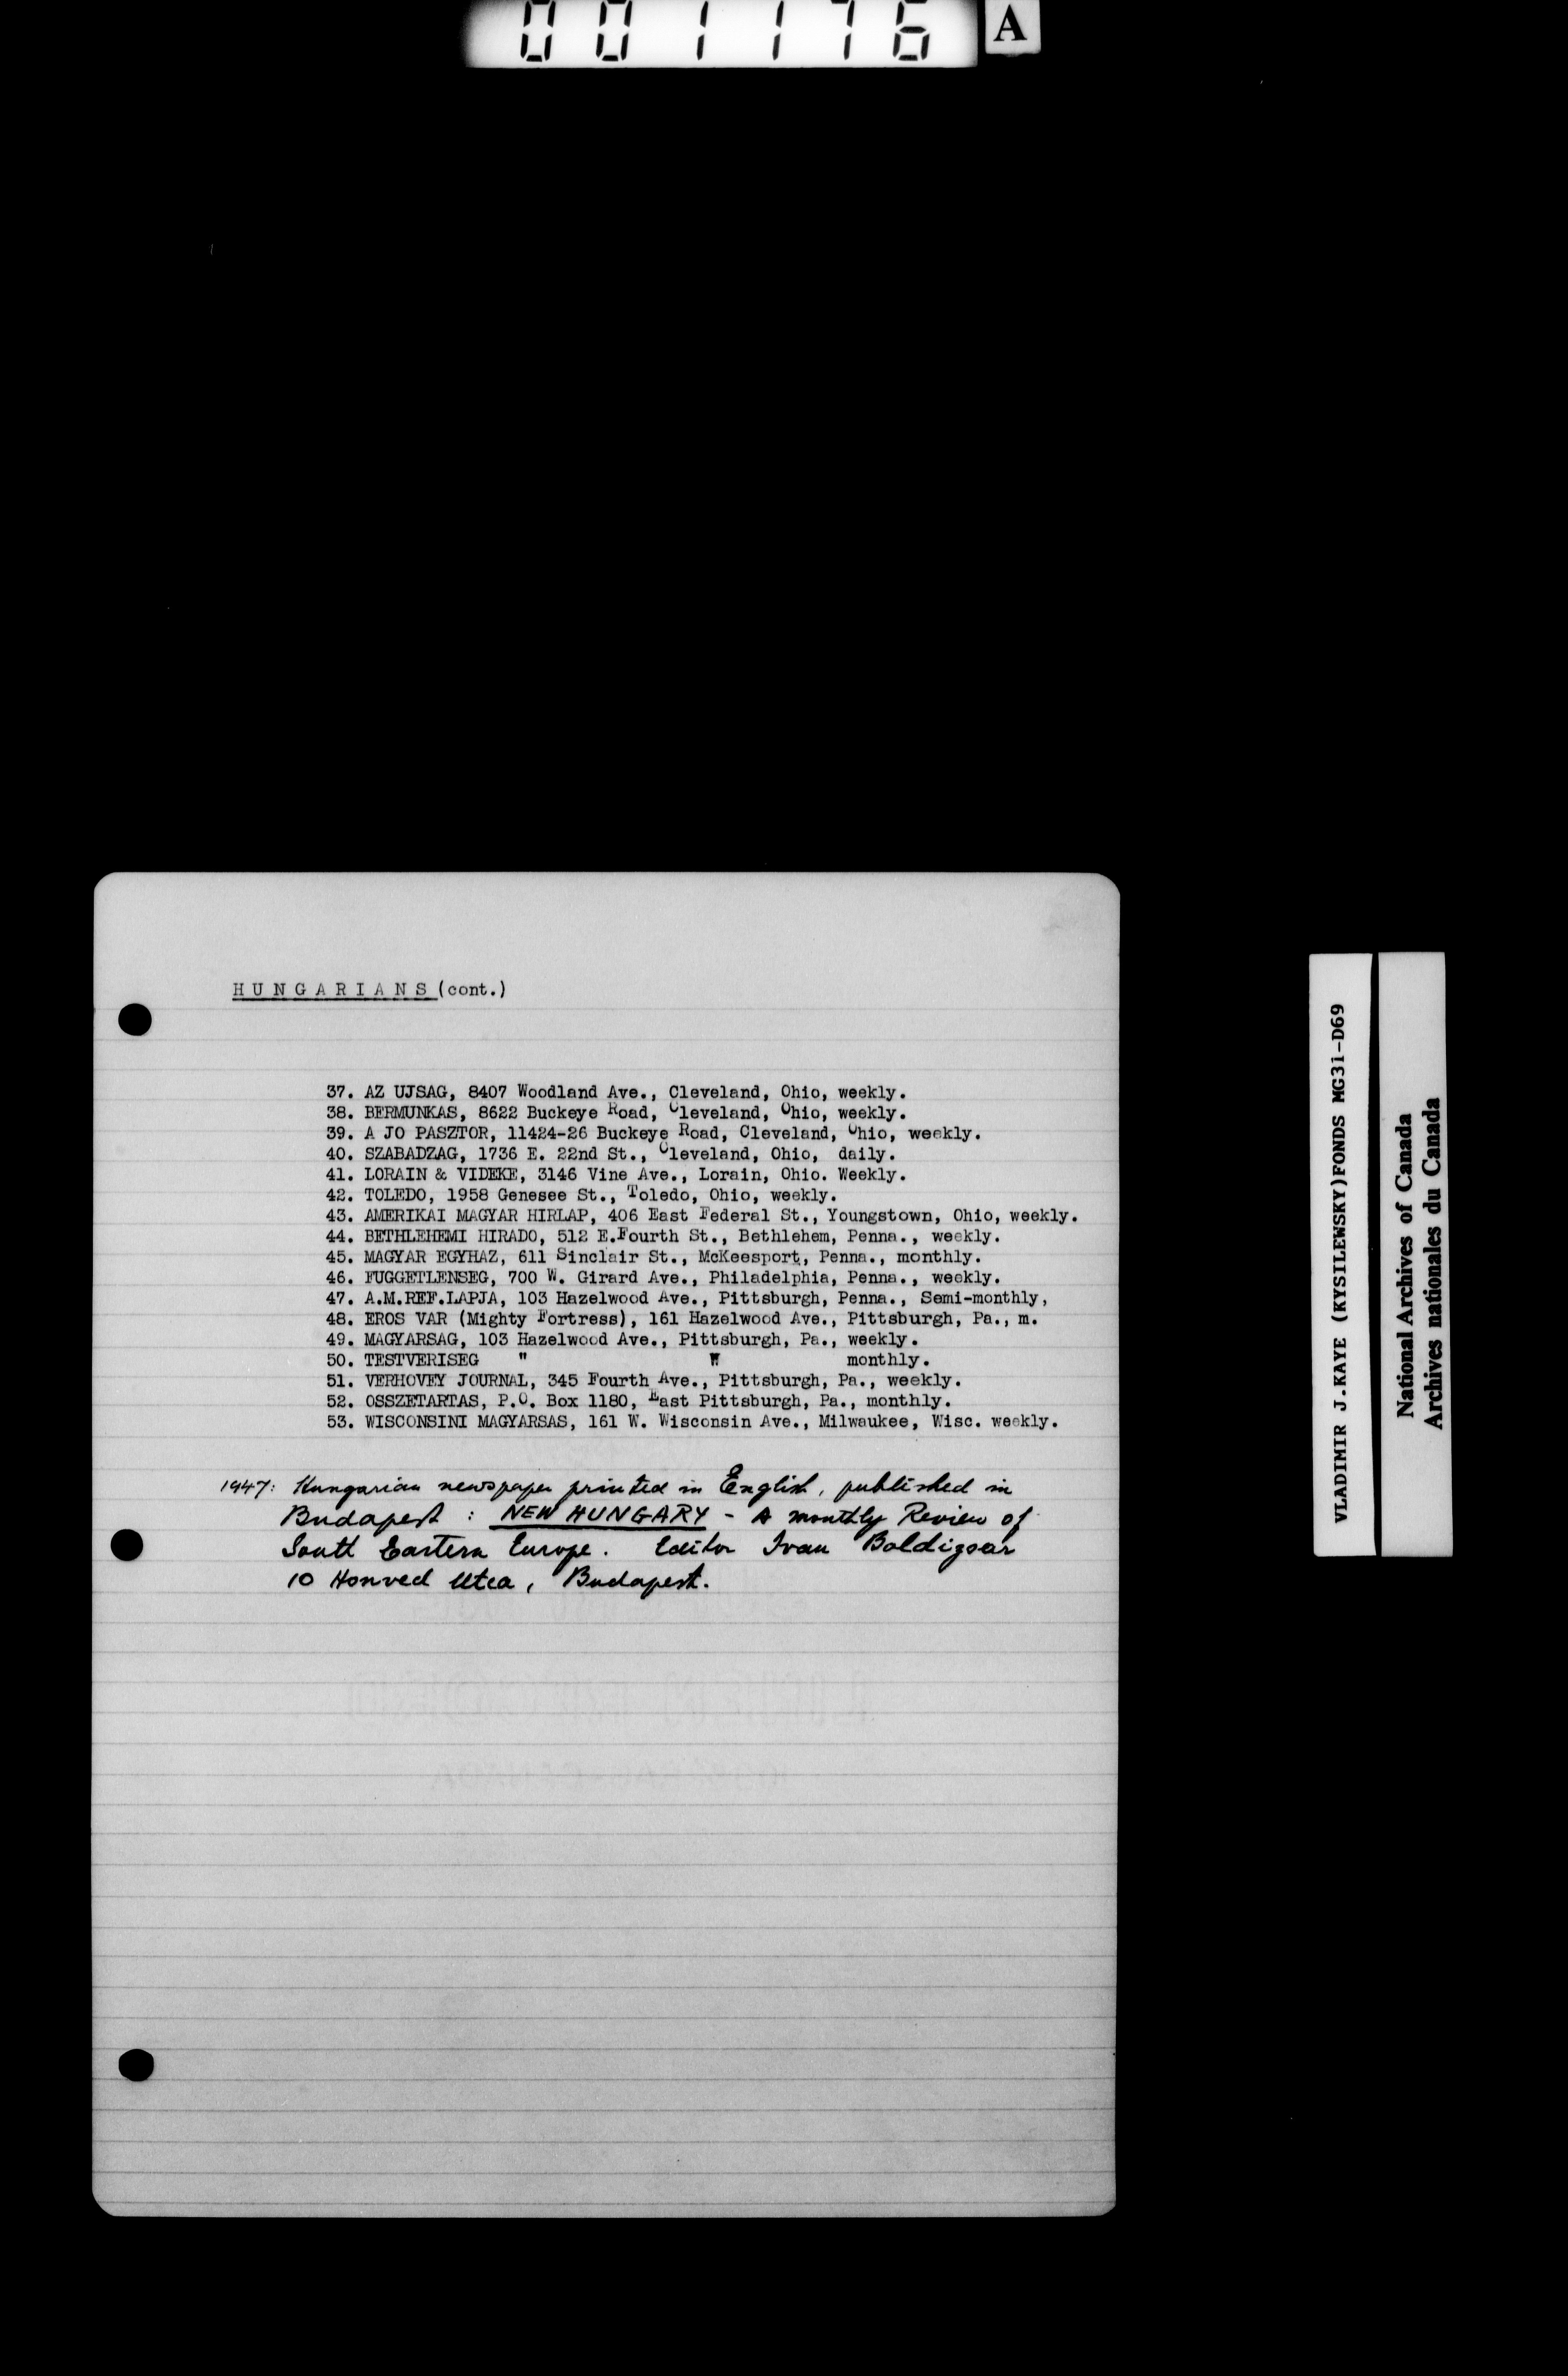 001176 A
HUNGARIANS (cont.)
37. AZ UJSAG, 8407 Woodland Ave., Cleveland, Ohio, weekly.
38. BERMUNKAS, 8622 Buckeye Road, Cleveland, Ohio, weekly.
39. A JO PASZTOR, 11424-26 Buckeye Road, Cleveland, Ohio, weekly.
40. SZABADZAG, 1736 E. 22nd St., Cleveland, Ohio, daily.
41. LORAIN & VIDEKE, 3146 Vine Ave., Lorain, Ohio. Weekly.
42. TOLEDO, 1958 Genesee St., Toledo, Ohio, weekly.
43. AMERIKAI MAGYAR HIRLAP, 406 East Federal St., Youngstown, Ohio, weekly.
44. BETHLEHEMI HIRADO, 512 E.Fourth St., Bethlehem, Penna., weekly.
45. MAGYAR EGYHAZ, 611 Sinclair St., McKeesport, Penna., monthly.
46. FUGGETLENSEG, 700 W. Girard Ave., Philadelphia, Penna., weekly.
47. A.M.REF.LAPJA, 103 Hazelwood Ave., Pittsburgh, Penna., Semi-monthly,
48. EROS VAR (Mighty Fortress), 161 Hazelwood Ave., Pittsburgh, Pa., m.
49. MAGYARSAG, 103 Hazelwood Ave., Pittsburgh, Pa., weekly.
50. TESTVERISEG " " monthly.
51. VERHOVEY JOURNAL, 345 Fourth Ave., Pittsburgh, Pa., weekly.
52. OSSZETARTAS, P.O. Box 1180, East Pittsburgh, Pa., monthly.
53. WISCONSINI MAGYARSAS, 161 W. Wisconsin Ave., Milwaukee, Wisc. weekly.
1947: Hungarian newspaper printed in English, published in
Budapest : NEW HUNGARY - A monthly Review of
South Eastern Europe. Editor Ivan Boldigsar
10 Honved Utca, Budapest.
VLADIMIR J.KAYE (KYSILEWSKY)FONDS MG31-D69
National Archives of Canada
Archives nationales du Canada